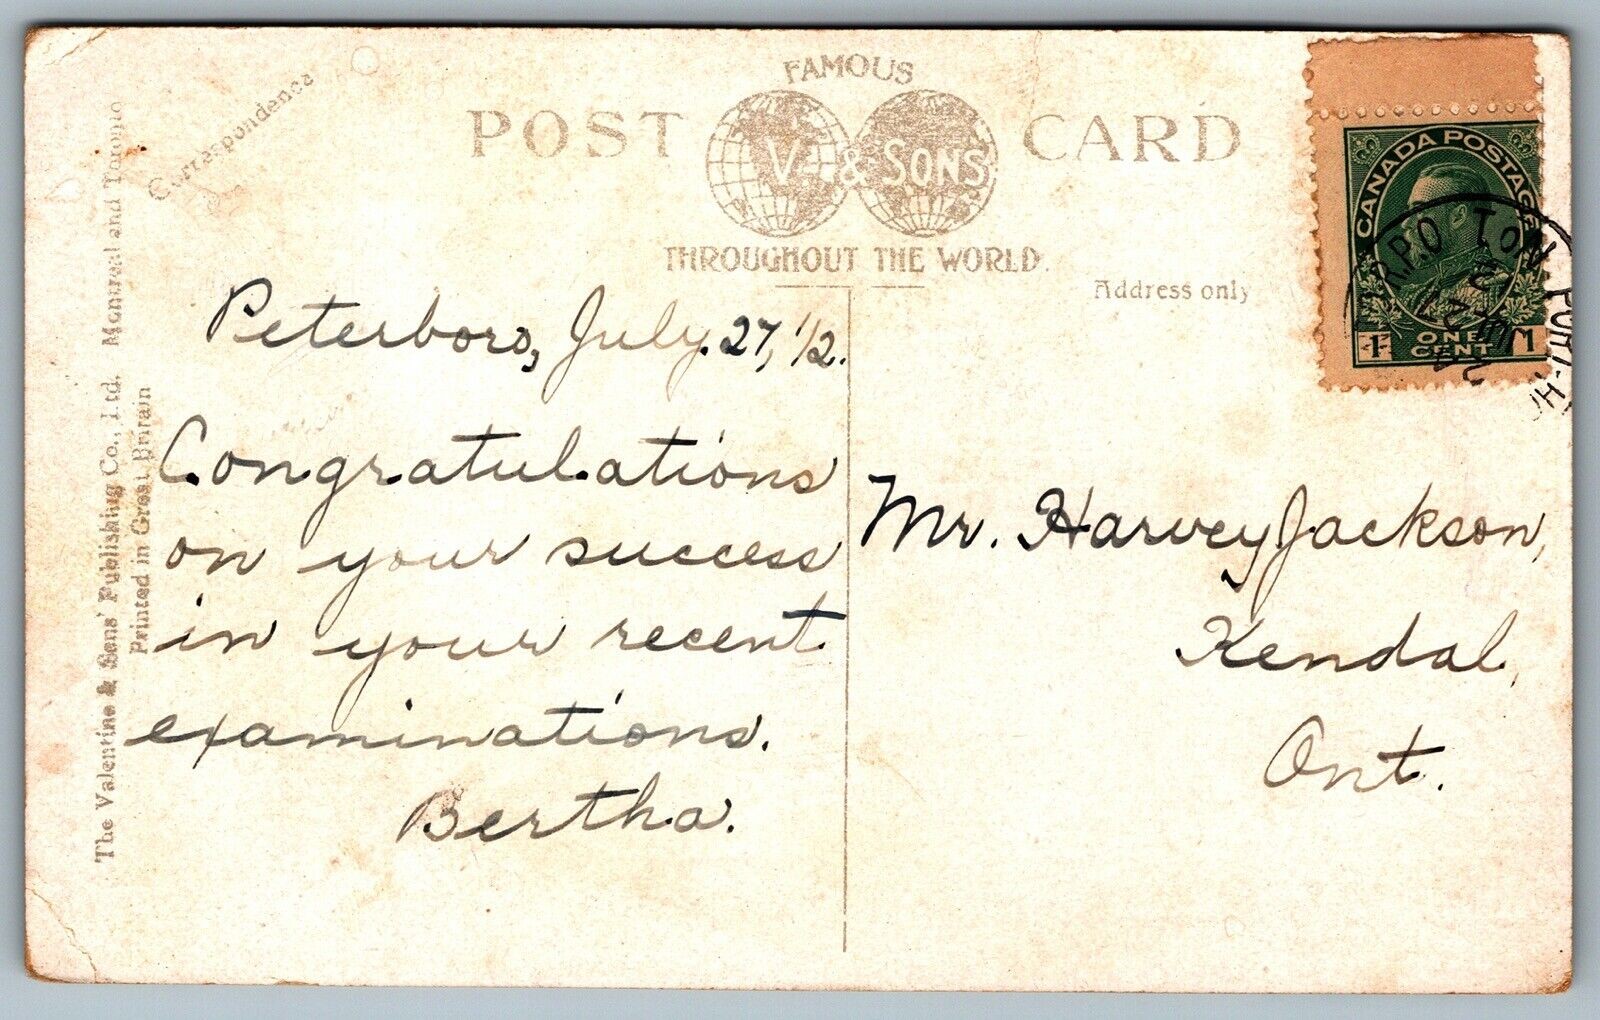 FAMOUS
POST CARD
V. & SONS
THROUGHOUT THE WORLD.
Correspondence
Address only
The Valentine & Sons' Publishing Co., Ltd. Montreal and Toronto
Printed in Great Britain
CANADA POSTAGE
1 ONE CENT 1
R.P.O
Peterboro, July. 27, 1/2.
Congratulations
on your success
in your recent
examinations.
Bertha.
Mr. Harvey Jackson,
Kendal,
Ont.